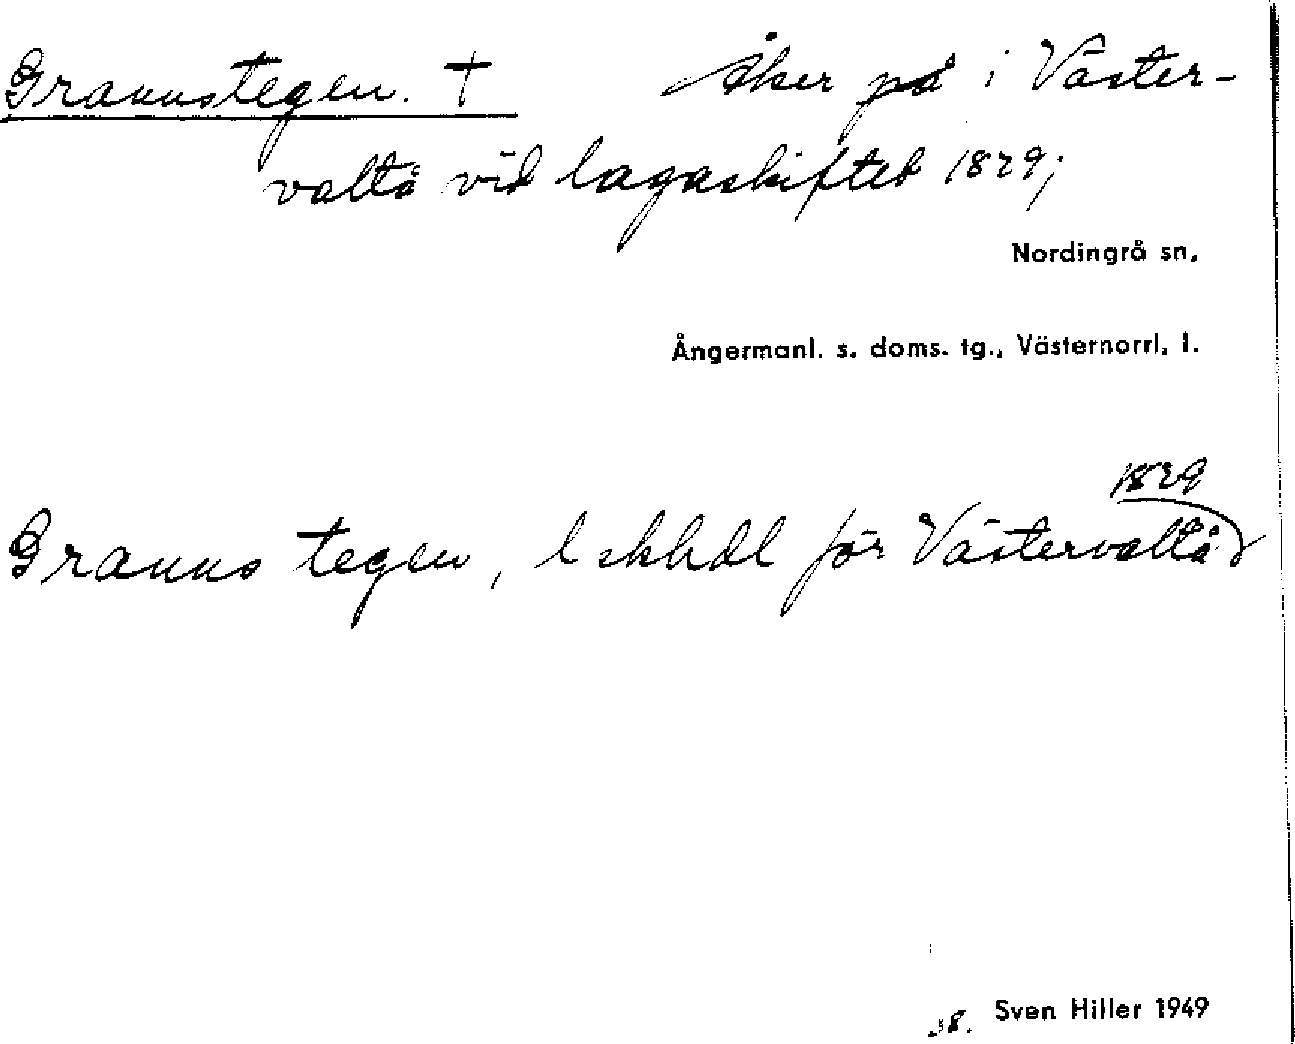 Grannstegen. † Åker på i Väster-
valtå vid lagaskiftet 1829;
Nordingrå sn,
Ångermanl. s. doms. tg., Västernorrl. l.
1829
Granns tegen, lskhdl för Västervaltå
Sven Hiller 1949